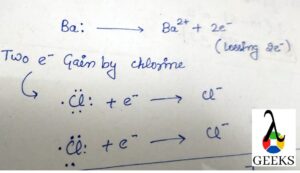 Ba: ⟶ Ba²⁺ + 2e⁻
(Lossing 2e⁻)
Two e⁻ Gain by chlorine
·Cl: + e⁻ ⟶ Cl⁻
·Cl: + e⁻ ⟶ Cl⁻
λ
GEEKS